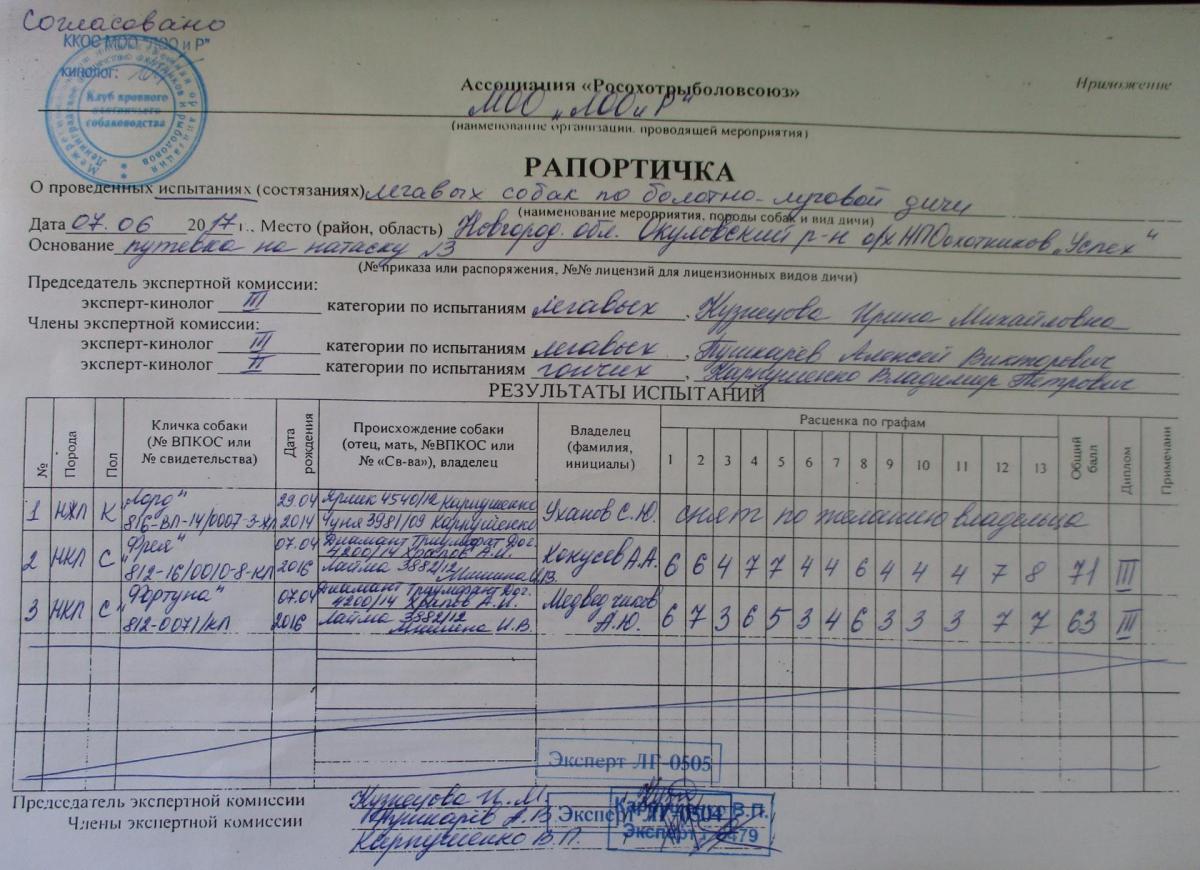 Согласовано
ККОС МОО "ЛОО и Р"
кинолог:
Клуб кровного
охотничьего
собаководства
Ассоциация «Росохотрыболовсоюз»
Приложение
МОО „ЛОО и Р"
(наименование организации, проводящей мероприятия)
РАПОРТИЧКА
О проведенных испытаниях (состязаниях) легавых собак по болотно-луговой дичи
(наименование мероприятия, породы собак и вид дичи)
Дата 07.06 2017 г., Место (район, область) Новгород. обл. Окуловский р-н о/х НПОохотников „Успех"
Основание путевка на натаску №3
(№ приказа или распоряжения, №№ лицензий для лицензионных видов дичи)
Председатель экспертной комиссии:
эксперт-кинолог III категории по испытаниям легавых, Кузнецова Ирина Михайловна
Члены экспертной комиссии:
эксперт-кинолог III категории по испытаниям легавых, Пушкарёв Алексей Викторович
эксперт-кинолог II категории по испытаниям гончих, Карпушенко Владимир Петрович
РЕЗУЛЬТАТЫ ИСПЫТАНИЙ
№ Порода Пол Кличка собаки (№ ВПКОС или № свидетельства) Дата рождения Происхождение собаки (отец, мать, №ВПКОС или № «Св-ва»), владелец Владелец (фамилия, инициалы) Расценка по графам 1 2 3 4 5 6 7 8 9 10 11 12 13 Общий балл Диплом Примечани
1 НХЛ К „Лорд" 816-ВЛ-14/0007-3-ХЛ 29.04 2014 Ярлик 4540/12 Карпушенко Чуня 3981/09 Карпушенко Уханов С.Ю. снят по желанию владельца
2 НКЛ С „Фрея" 812-16/0010-8-КЛ 07.04 2016 Диамант Триумфант Дог. 4200/14 Храпов А.И. Лайма 3882/12 Мишина И.В. Кокусев А.А. 6 6 4 7 7 4 4 6 4 4 4 7 8 71 III
3 НКЛ С „Фортуна" 812-0071/КЛ 07.04 2016 Диамант Триумфант Дог. 4200/14 Храпов А.И. Лайма 3882/12 Мишина И.В. А.Ю. 6 7 3 6 5 3 4 6 3 3 3 7 7 63 III
Эксперт ЛГ-0505
Председатель экспертной комиссии Кузнецова И.М.
Члены экспертной комиссии Пушкарёв А.В. Эксперт ЛГ-0504 Карпушенко В.П.
Карпушенко В.П. Эксперт